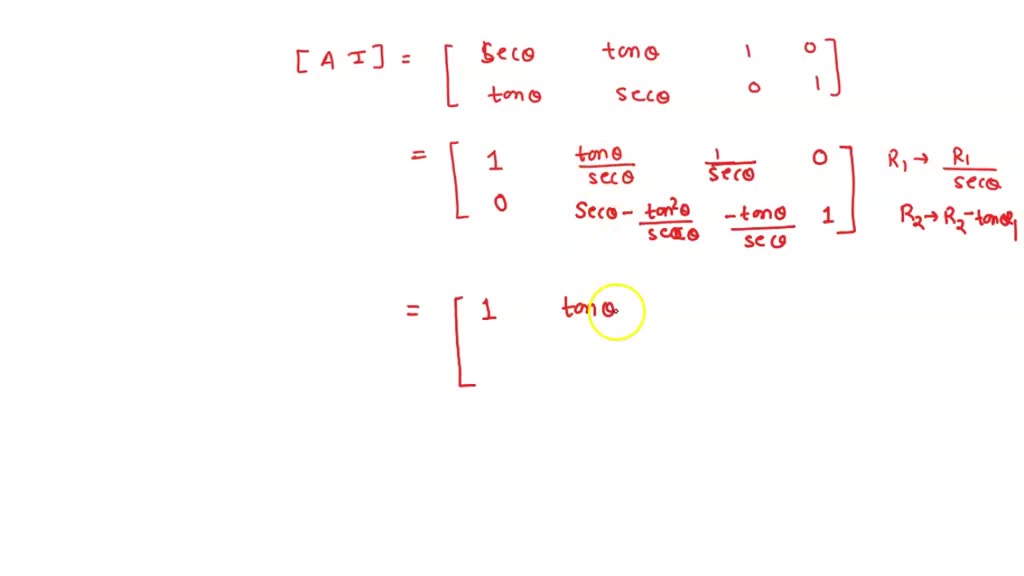 [A I] = [ secθ tanθ 1 0
tanθ secθ 0 1 ]
= [ 1 tanθ/secθ 1/secθ 0 ] R₁ → R₁/secθ
0 secθ - tan²θ/secθ -tanθ/secθ 1 R₂ → R₂ - tanθR₁
= [ 1 tanθ